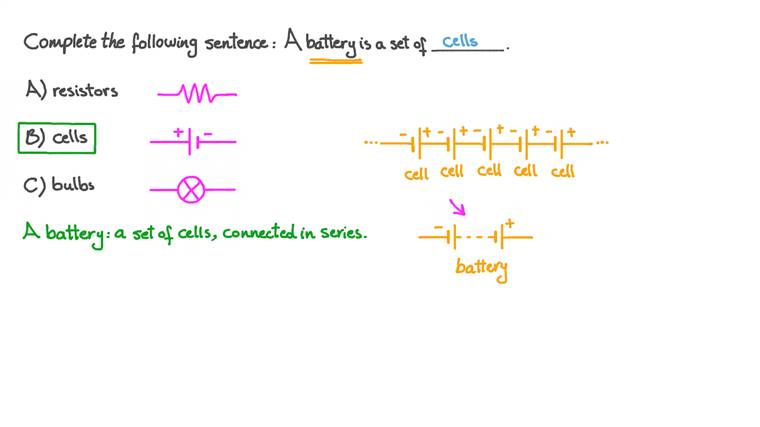 Complete the following sentence: A battery is a set of cells.
A) resistors
B) cells
C) bulbs
A battery: a set of cells, connected in series.
+ -
... - + - + - + - + - + ...
cell cell cell cell cell
- +
battery